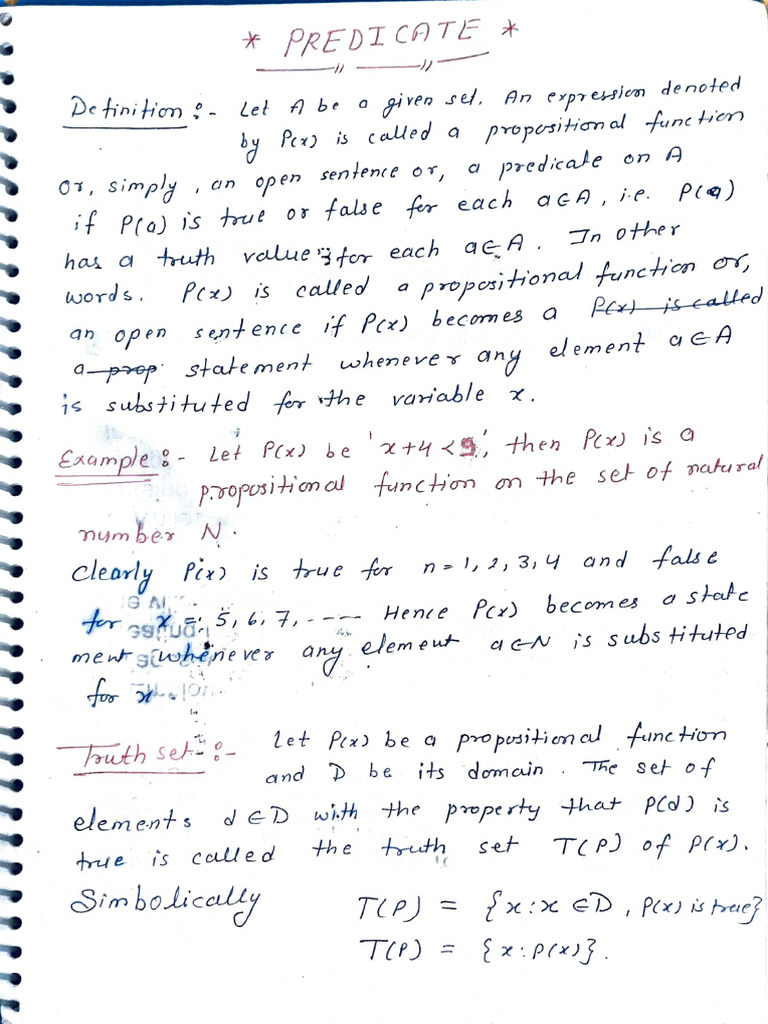 * PREDICATE *
Definition :- Let A be a given set. An expression denoted
by P(x) is called a propositional function
Or, simply, an open sentence or, a predicate on A
if P(a) is true or false for each a∈A, i.e. P(a)
has a truth value for each a∈A. In other
words. P(x) is called a propositional function or,
an open sentence if P(x) becomes a P(x) is called
a prop statement whenever any element a∈A
is substituted for the variable x.
Example :- Let P(x) be 'x+4<9', then P(x) is a
propositional function on the set of natural
number N.
Clearly P(x) is true for n=1,2,3,4 and false
for x = 5, 6, 7, ---- Hence P(x) becomes a state
ment whenever any element a∈N is substituted
for x.
Truth set :- Let P(x) be a propositional function
and D be its domain. The set of
elements d∈D with the property that P(d) is
true is called the truth set T(P) of P(x).
Simbolically T(P) = {x:x∈D, P(x) is true}
T(P) = {x:P(x)}.